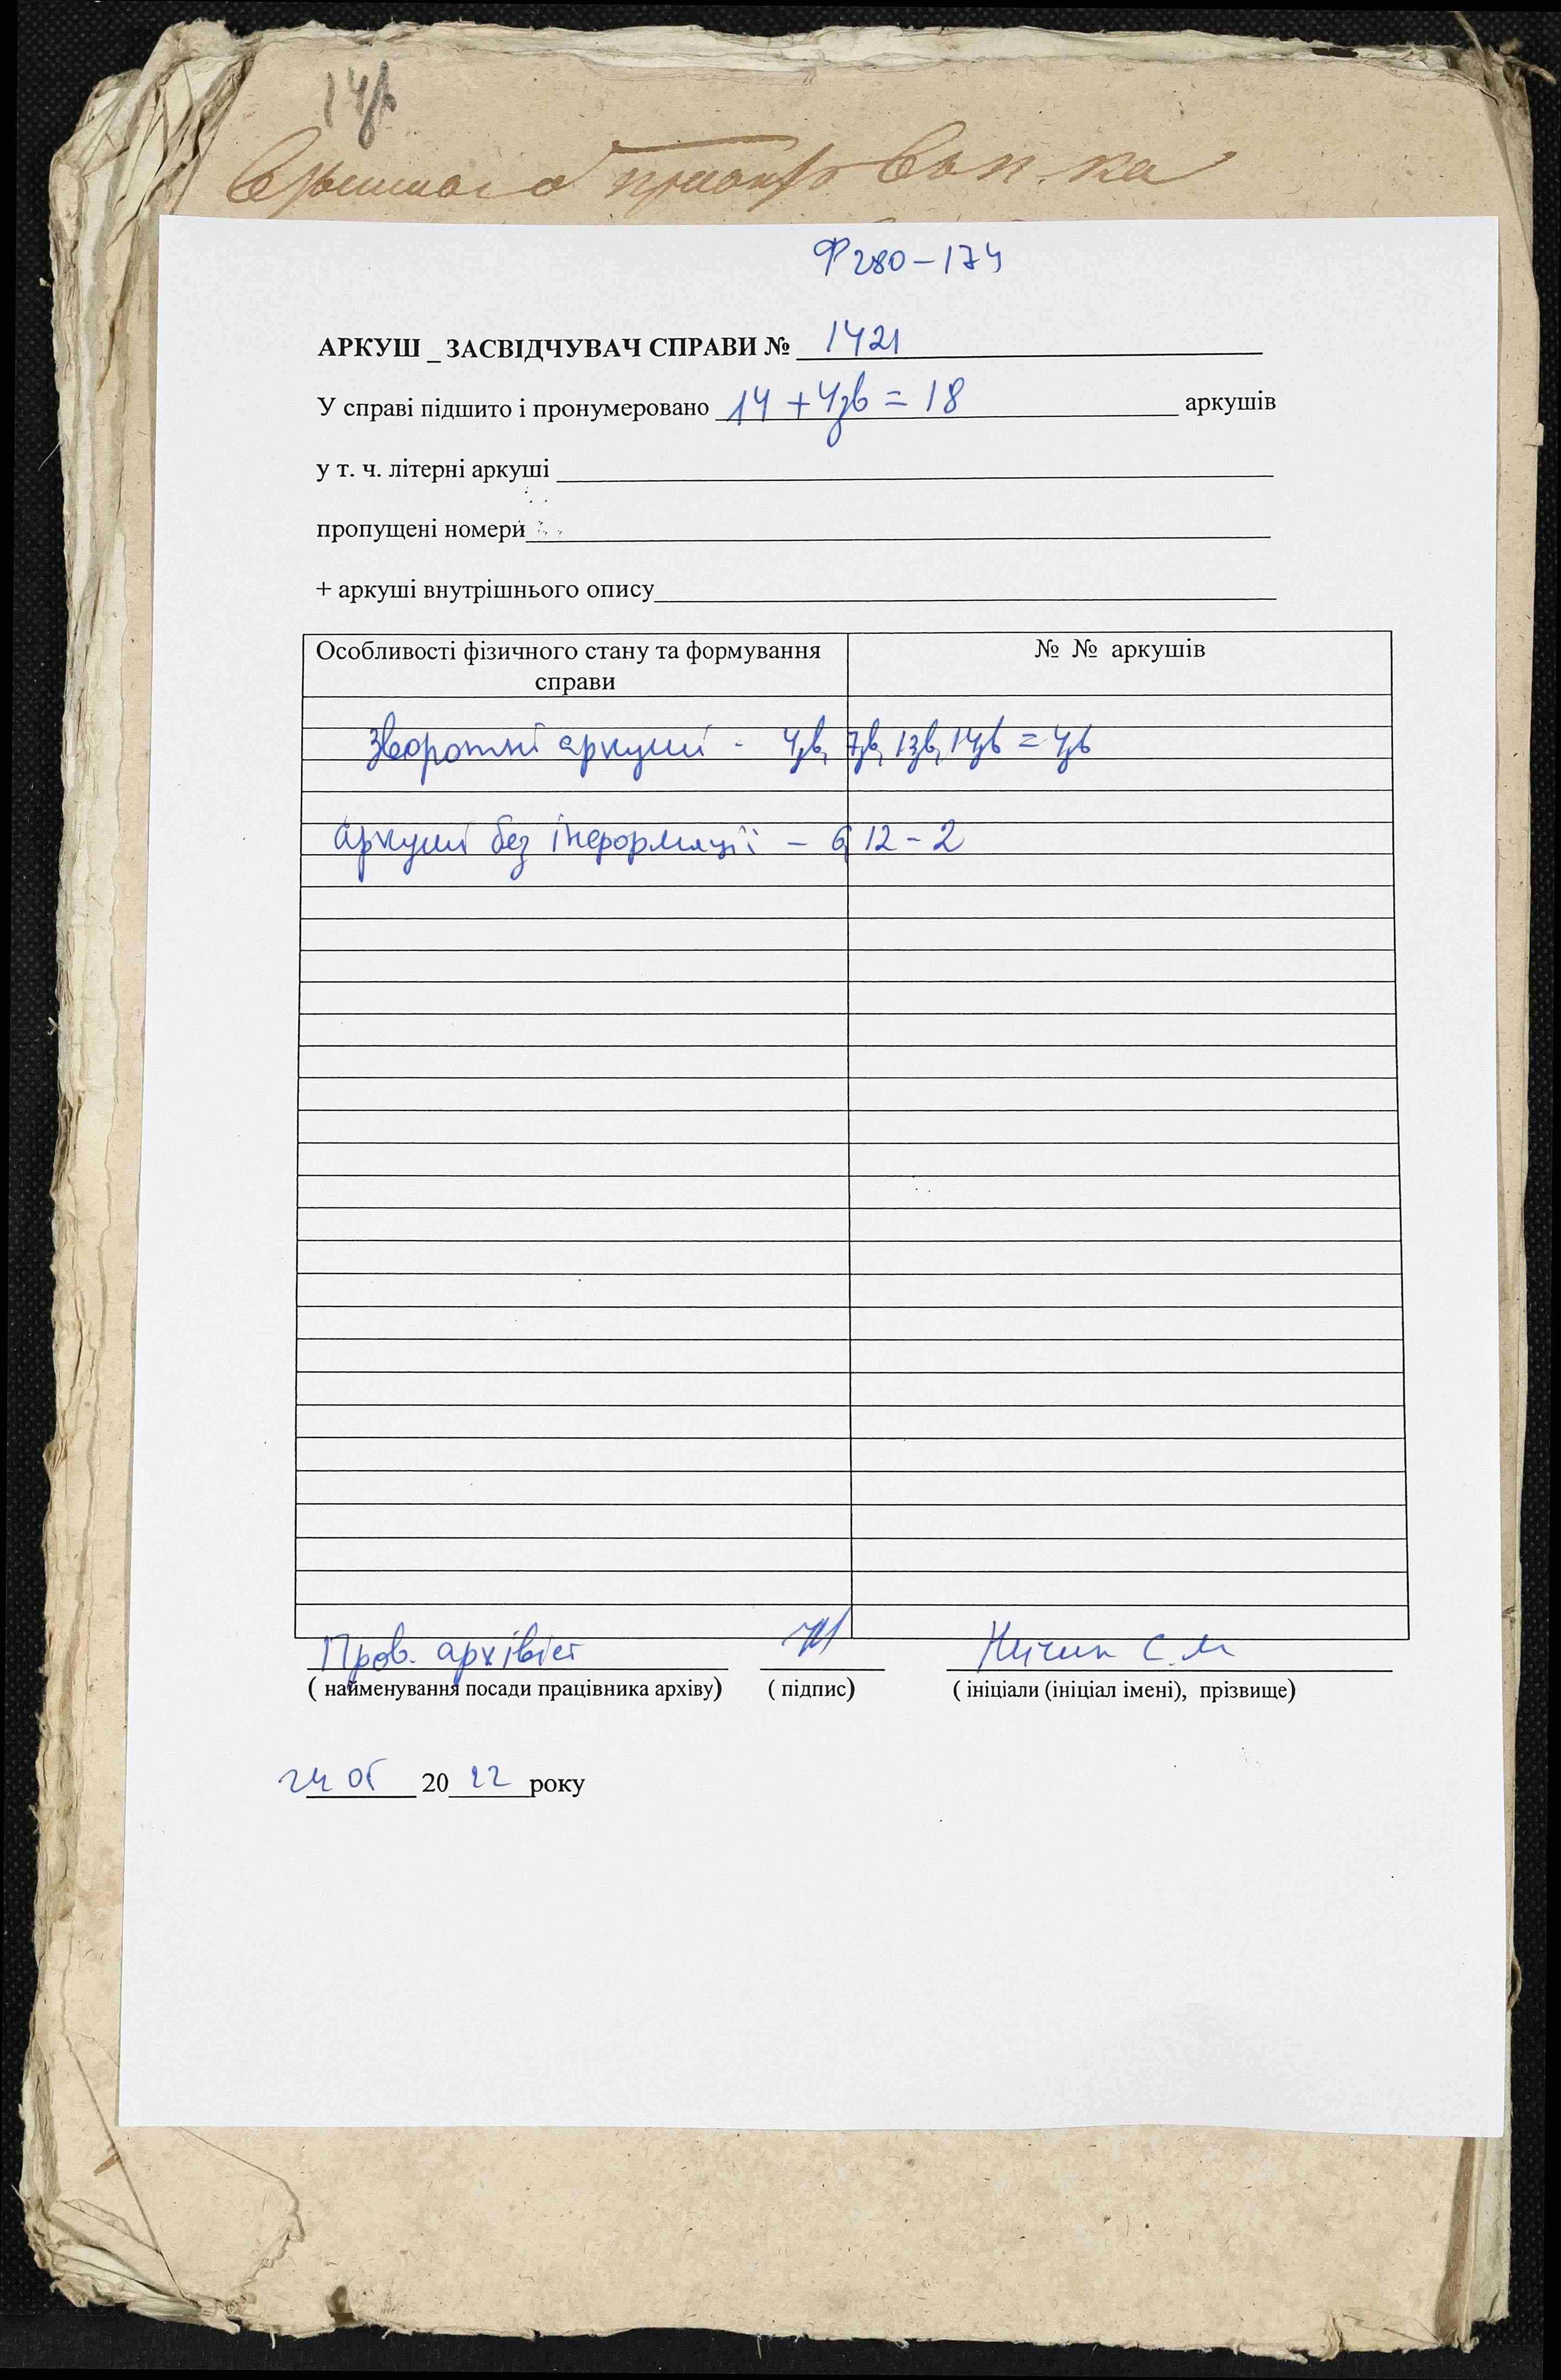 14зв
Ф 280-174
АРКУШ _ ЗАСВІДЧУВАЧ СПРАВИ № 1421
У справі підшито і пронумеровано 14 + 4зв = 18 аркушів
у т. ч. літерні аркуші
пропущені номери
+ аркуші внутрішнього опису
Особливості фізичного стану та формування
справи
№ № аркушів
Зворотні аркуші - 4зв, 7зв, 13зв, 14зв = 4зв
Аркуші без інформації – 6, 12 - 2
Пров. архівіст
С. М
( найменування посади працівника архіву) ( підпис) ( ініціали (ініціал імені), прізвище)
24 05 2022 року